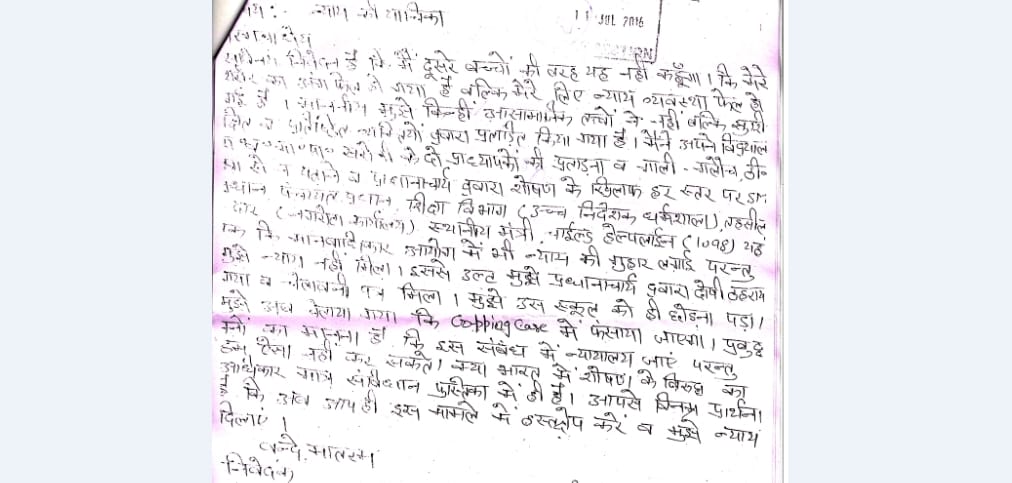 न्याय की याचिका
11 JUL 2016
सविनय निवेदन है कि मैं दूसरे बच्चों की तरह यह नहीं कहूँगा। कि मेरे
शरीर का अंग फेल हो गया है बल्कि मेरे लिए न्याय व्यवस्था फेल हो
गई है। माननीय मुझे किन्हीं आसामाजिक तत्वों ने नहीं बल्कि
व प्रतिष्ठित व्यक्तियों द्वारा प्रताड़ित किया गया है। मैंने अपने विद्यालय
के दो प्राध्यापकों की प्रताड़ना व गाली-गलौच, ठीक
से न पढ़ाने व प्रधानाचार्य द्वारा शोषण के खिलाफ हर स्तर पर SM
पंचायत प्रधान, शिक्षा विभाग (उच्च निदेशक धर्मशाला), तहसील
स्थानीय मंत्री, चाईल्ड हेल्पलाईन (1098) यहां
तक कि मानवाधिकार आयोग में भी न्याय की गुहार लगाई परन्तु
मुझे न्याय नहीं मिला। इससे उल्ट मुझे प्रधानाचार्य द्वारा दोषी ठहराया
गया व चेतावनी पत्र मिला। मुझे उस स्कूल को ही छोड़ना पड़ा।
मुझे अब बताया गया कि Copping Case में फंसाया जाएगा। प्रबुद्ध
का मानना है कि इस संबंध में न्यायालय जाएं परन्तु
हम ऐसा नहीं कर सकते। क्या भारत में शोषण के विरुद्ध का
अधिकार मात्र संविधान पुस्तिका में ही है। आपसे विनम्र प्रार्थना
है कि अब आप ही इस मामले में हस्तक्षेप करें व मुझे न्याय
दिलाएं।
वन्दे मातरम
निवेदक